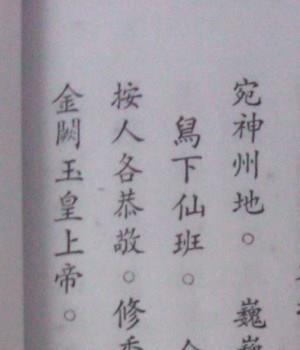 宛神州地。巍
舃下仙班。
按人各恭敬。修
金闕玉皇上帝。